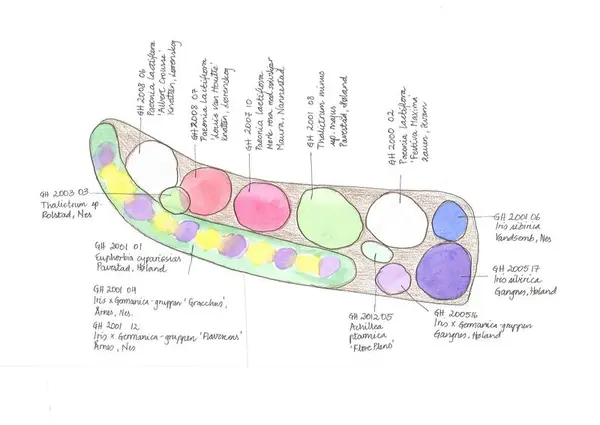 GH 2008 06
Paeonia lactiflora
'Albert Crousse'
Knatten, Lørenskog
GH 2008 07
Paeonia lactiflora
'Louis van Houtte'
Knatten, Lørenskog
GH 2007 10
Paeonia lactiflora
Mørk rosa med
Maura, Nannestad
GH 2001 08
Thalictrum minus
sp. majus
Paustad, Holand
GH 2000 02
Paeonia lactiflora
'Festiva Maxima'
GH 2003 03
Thalictrum sp.
Rolstad, Nes
GH 2001 01
Euphorbia cyparissias
Paustad, Holand
GH 2001 04
Iris x Germanica-gruppen 'Gracchus',
Årnes, Nes.
GH 2001 12
Iris x Germanica-gruppen 'Flavescens'
Årnes, Nes
GH 2001 06
Iris sibirica
Nes
GH 2005 17
Iris sibirica
Gangnes, Holand
GH 2005 16
Iris x Germanica-gruppen
Gangnes, Holand
GH 2012 05
Achillea
ptarmica
'Flore Pleno'